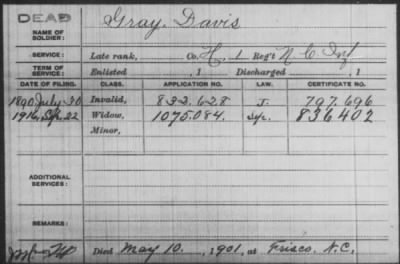 DEAD
Gray, Davis
NAME OF SOLDIER:
SERVICE: Late rank, Co. H, 1 Reg't N.C. Inf
TERM OF SERVICE: Enlisted , 1 Discharged , 1
DATE OF FILING. CLASS. APPLICATION NO. LAW. CERTIFICATE NO.
1890 July 30 Invalid, 832.628 J. 797.696
1916, 22 Widow, 1075.084. 836402
Minor,
ADDITIONAL SERVICES:
REMARKS:
Died May 10, , 1901, at Frisco, N.C.